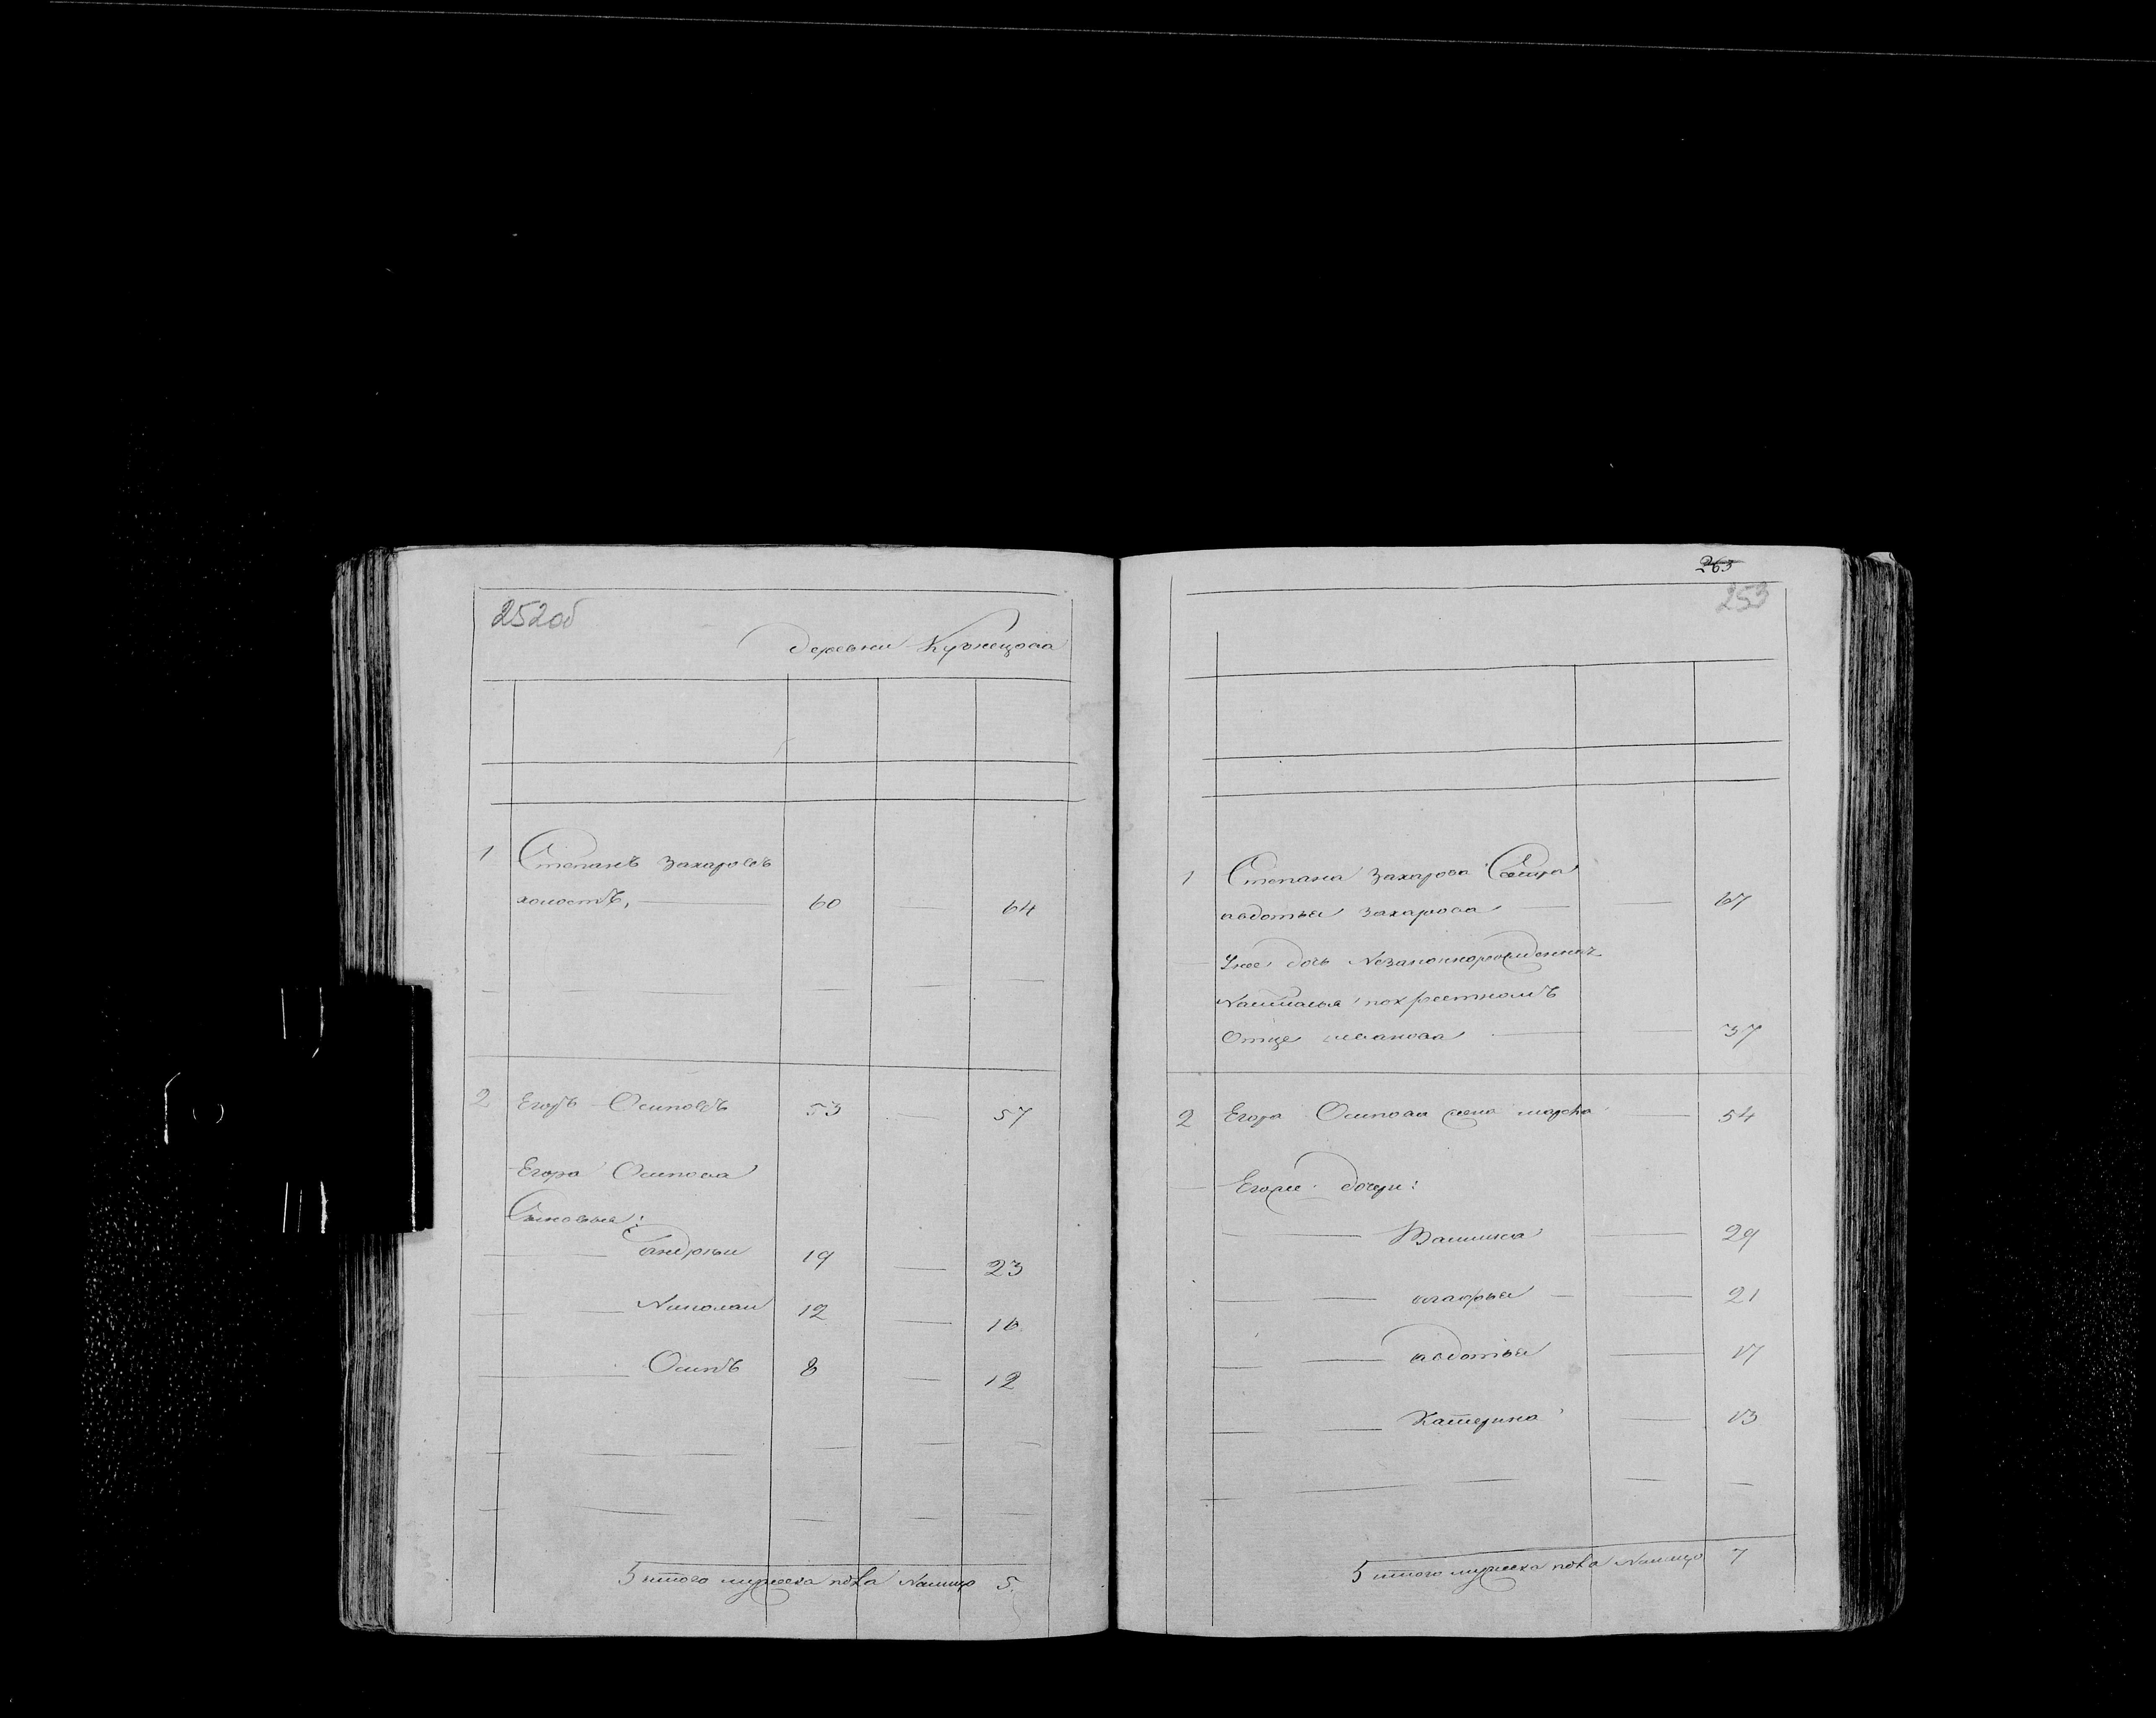 252об
деревни Кузнецова
1 Степанъ Захаровъ
холостъ, 60 — 64
2 Егоръ Осиповъ 53 — 57
Егора Осипова
Сыновья:
андреи 19 — 23
Николаи 12 — 16
Осипъ 8 — 12
итого мужеска пола налицо 5.
263
253
1 Степана Захарова Сестра
авдотья Захарова — 67
Унее дочь Незаконнорожденная
Наталья покрестномъ
Отце иванова — 37
2 Егора Осипова жена марфа — 54
Егоже дочери:
— 29
агафья — 21
авдотья — 17
Катерина — 13
итого пола налицо 7